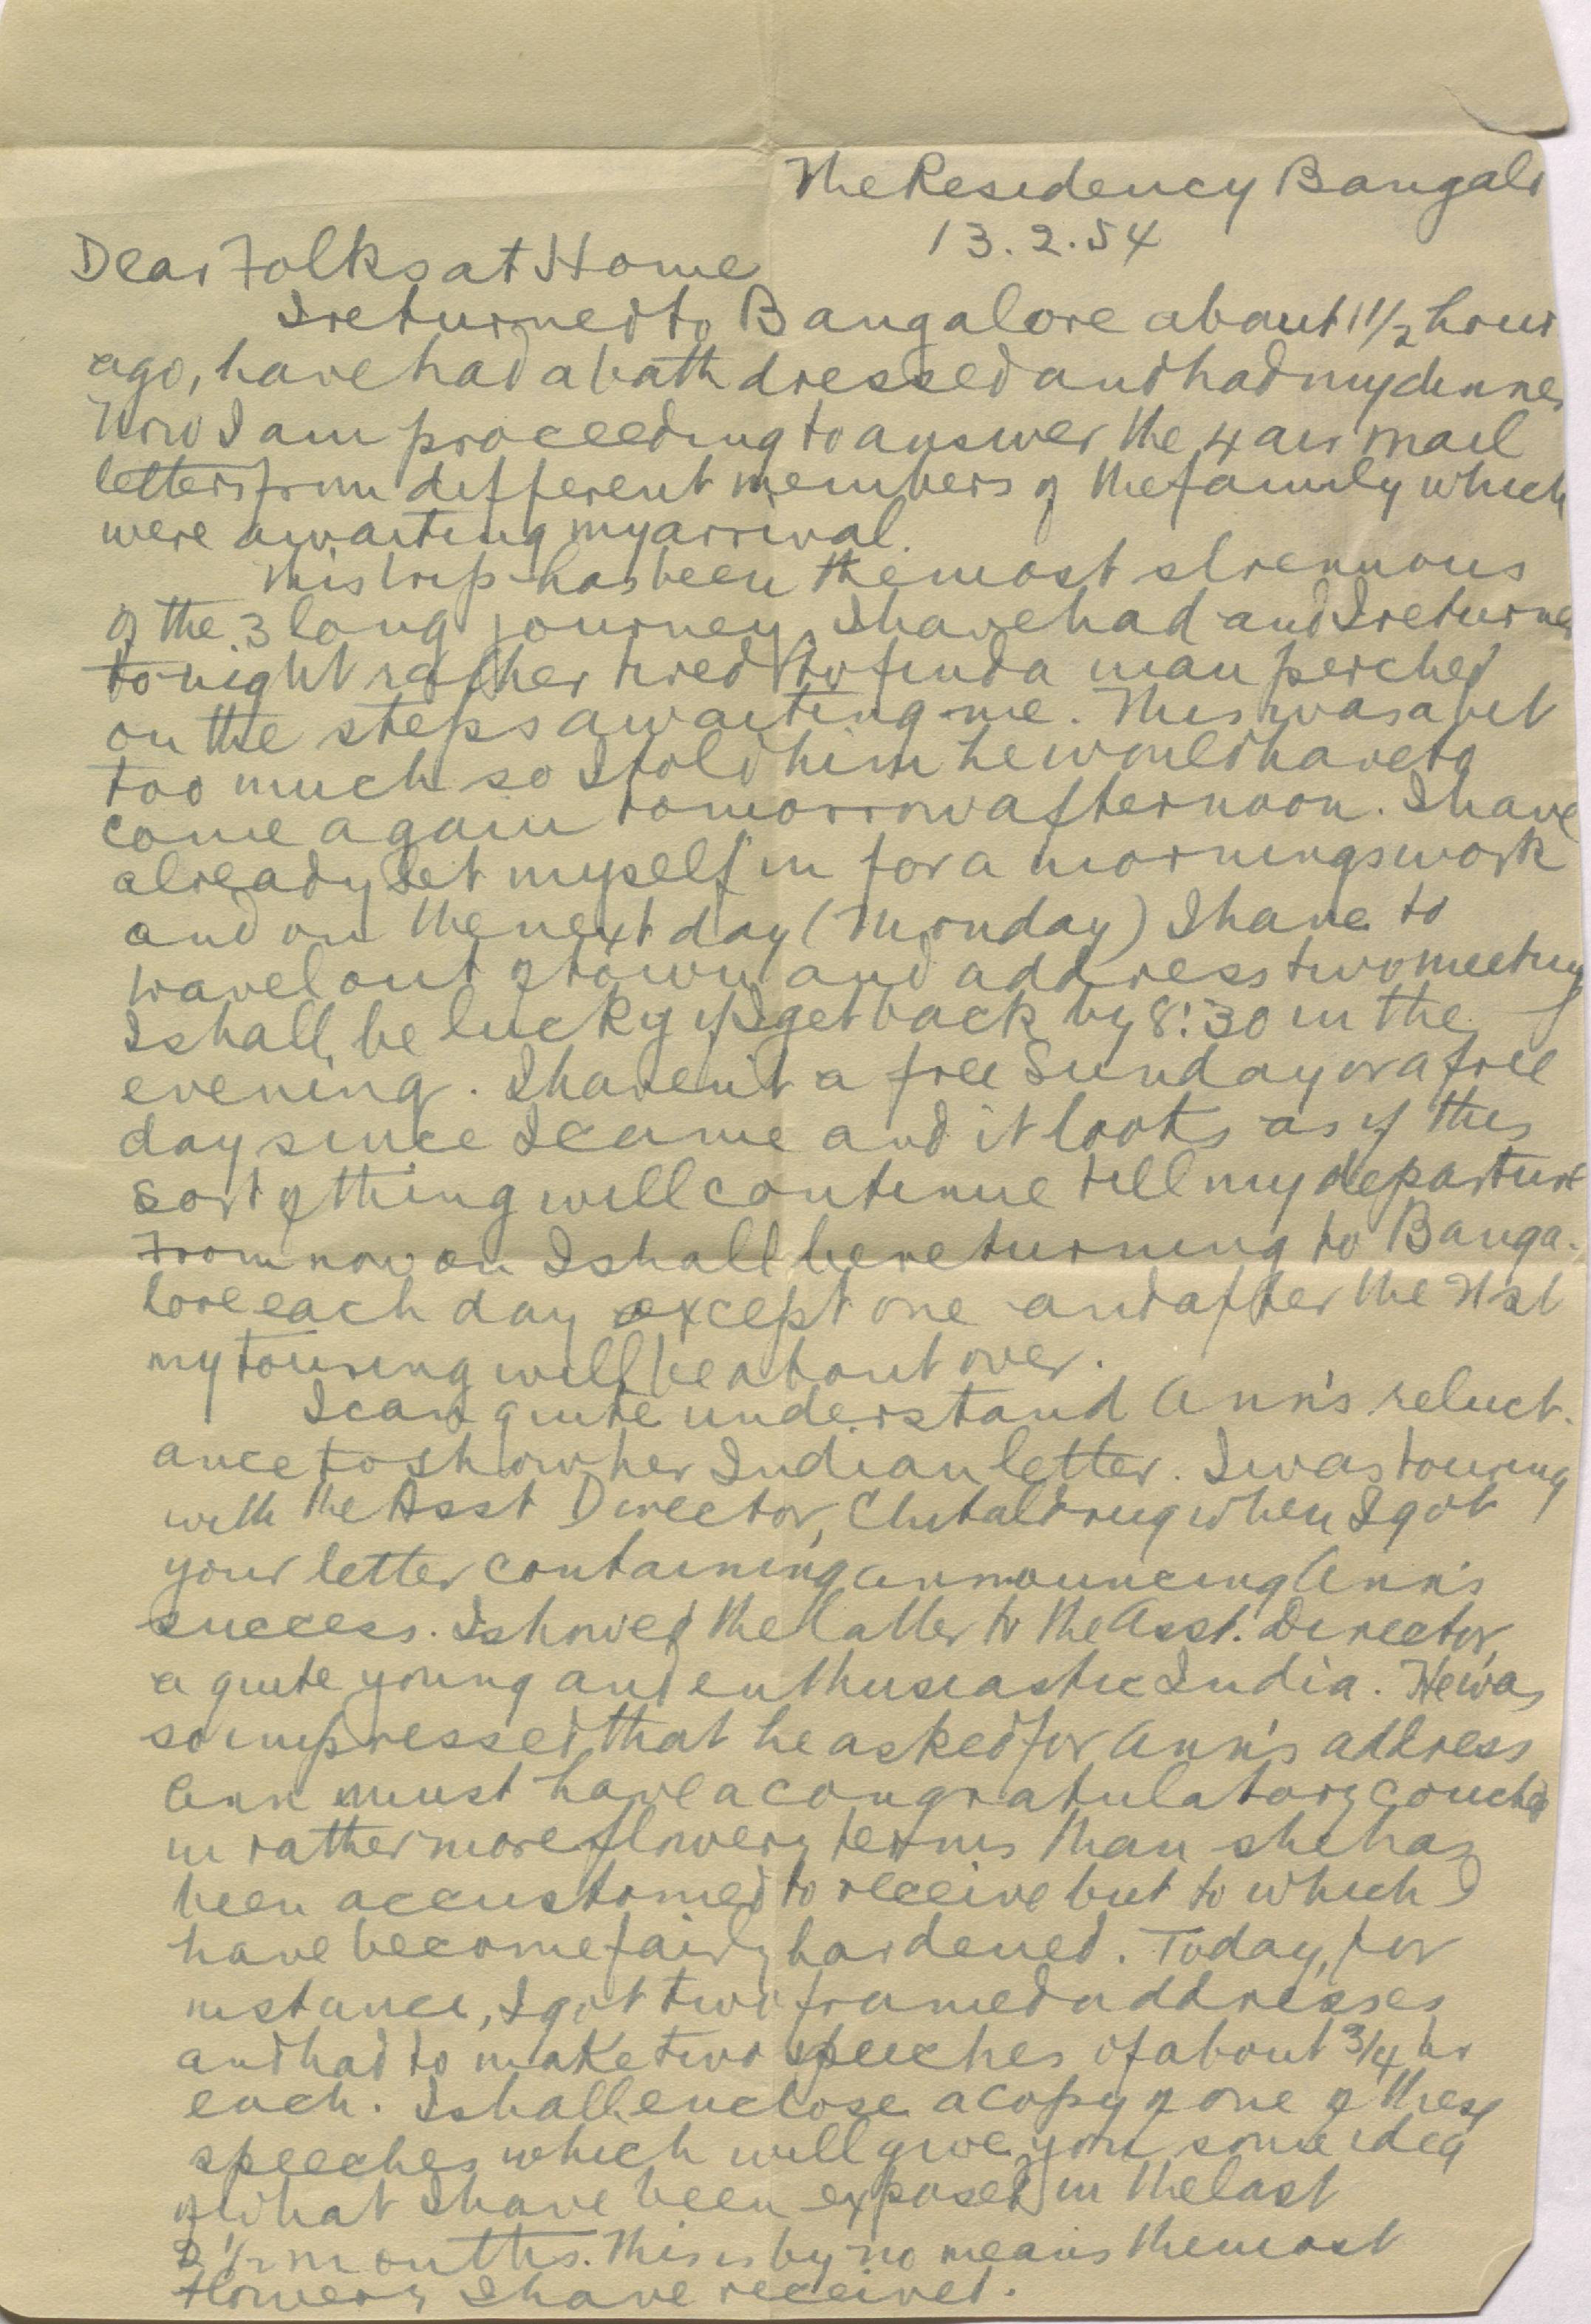 The Residency Bangalo
13.2.54
Dear Folks at Home
I returned to Bangalore about 1 1/2 hour
ago, have had a bath dressed and had my dinner
Now I am proceeding to answer the 4 air mail
letters from different members of the family which
were awaiting my arrival.
This trip has been the most strenuous
of the 3 long journeys I have had and I returned
tonight rather tired to find a man perched
on the steps awaiting me. This was a bit
too much so I told him he would have to
come again tomorrow afternoon. I have
already let myself in for a mornings work
and on the next day (Monday) I have to
travel out of town and address two meetings
I shall be lucky if I get back by 8:30 in the
evening. I haven't a free Sunday or a free
day since I came and it looks as if this
sort of thing will continue till my departure
From now on I shall be returning to Banga-
lore each day except one and after the 21st
my touring will be about over.
I can quite understand Ann's reluct-
ance to show her Indian letter. I was touring
with the Asst Director, Chitaldrug when I got
your letter containing announcing Ann's
success. I showed the latter to the Asst. Director,
a quite young and enthusiastic India. He was
so impressed that he asked for Ann's address
Ann must have a congratulatory couched
in rather more flowery terms than she has
been accustomed to receive but to which I
have become fairly hardened. Today, for
instance, I got two framed addresses
and had to make two speeches of about 3/4 hr
each. I shall enclose a copy of one of these
speeches which will give you some idea
of what I have been exposed in the last
2 1/2 months. This is by no means the most
flowery I have received.